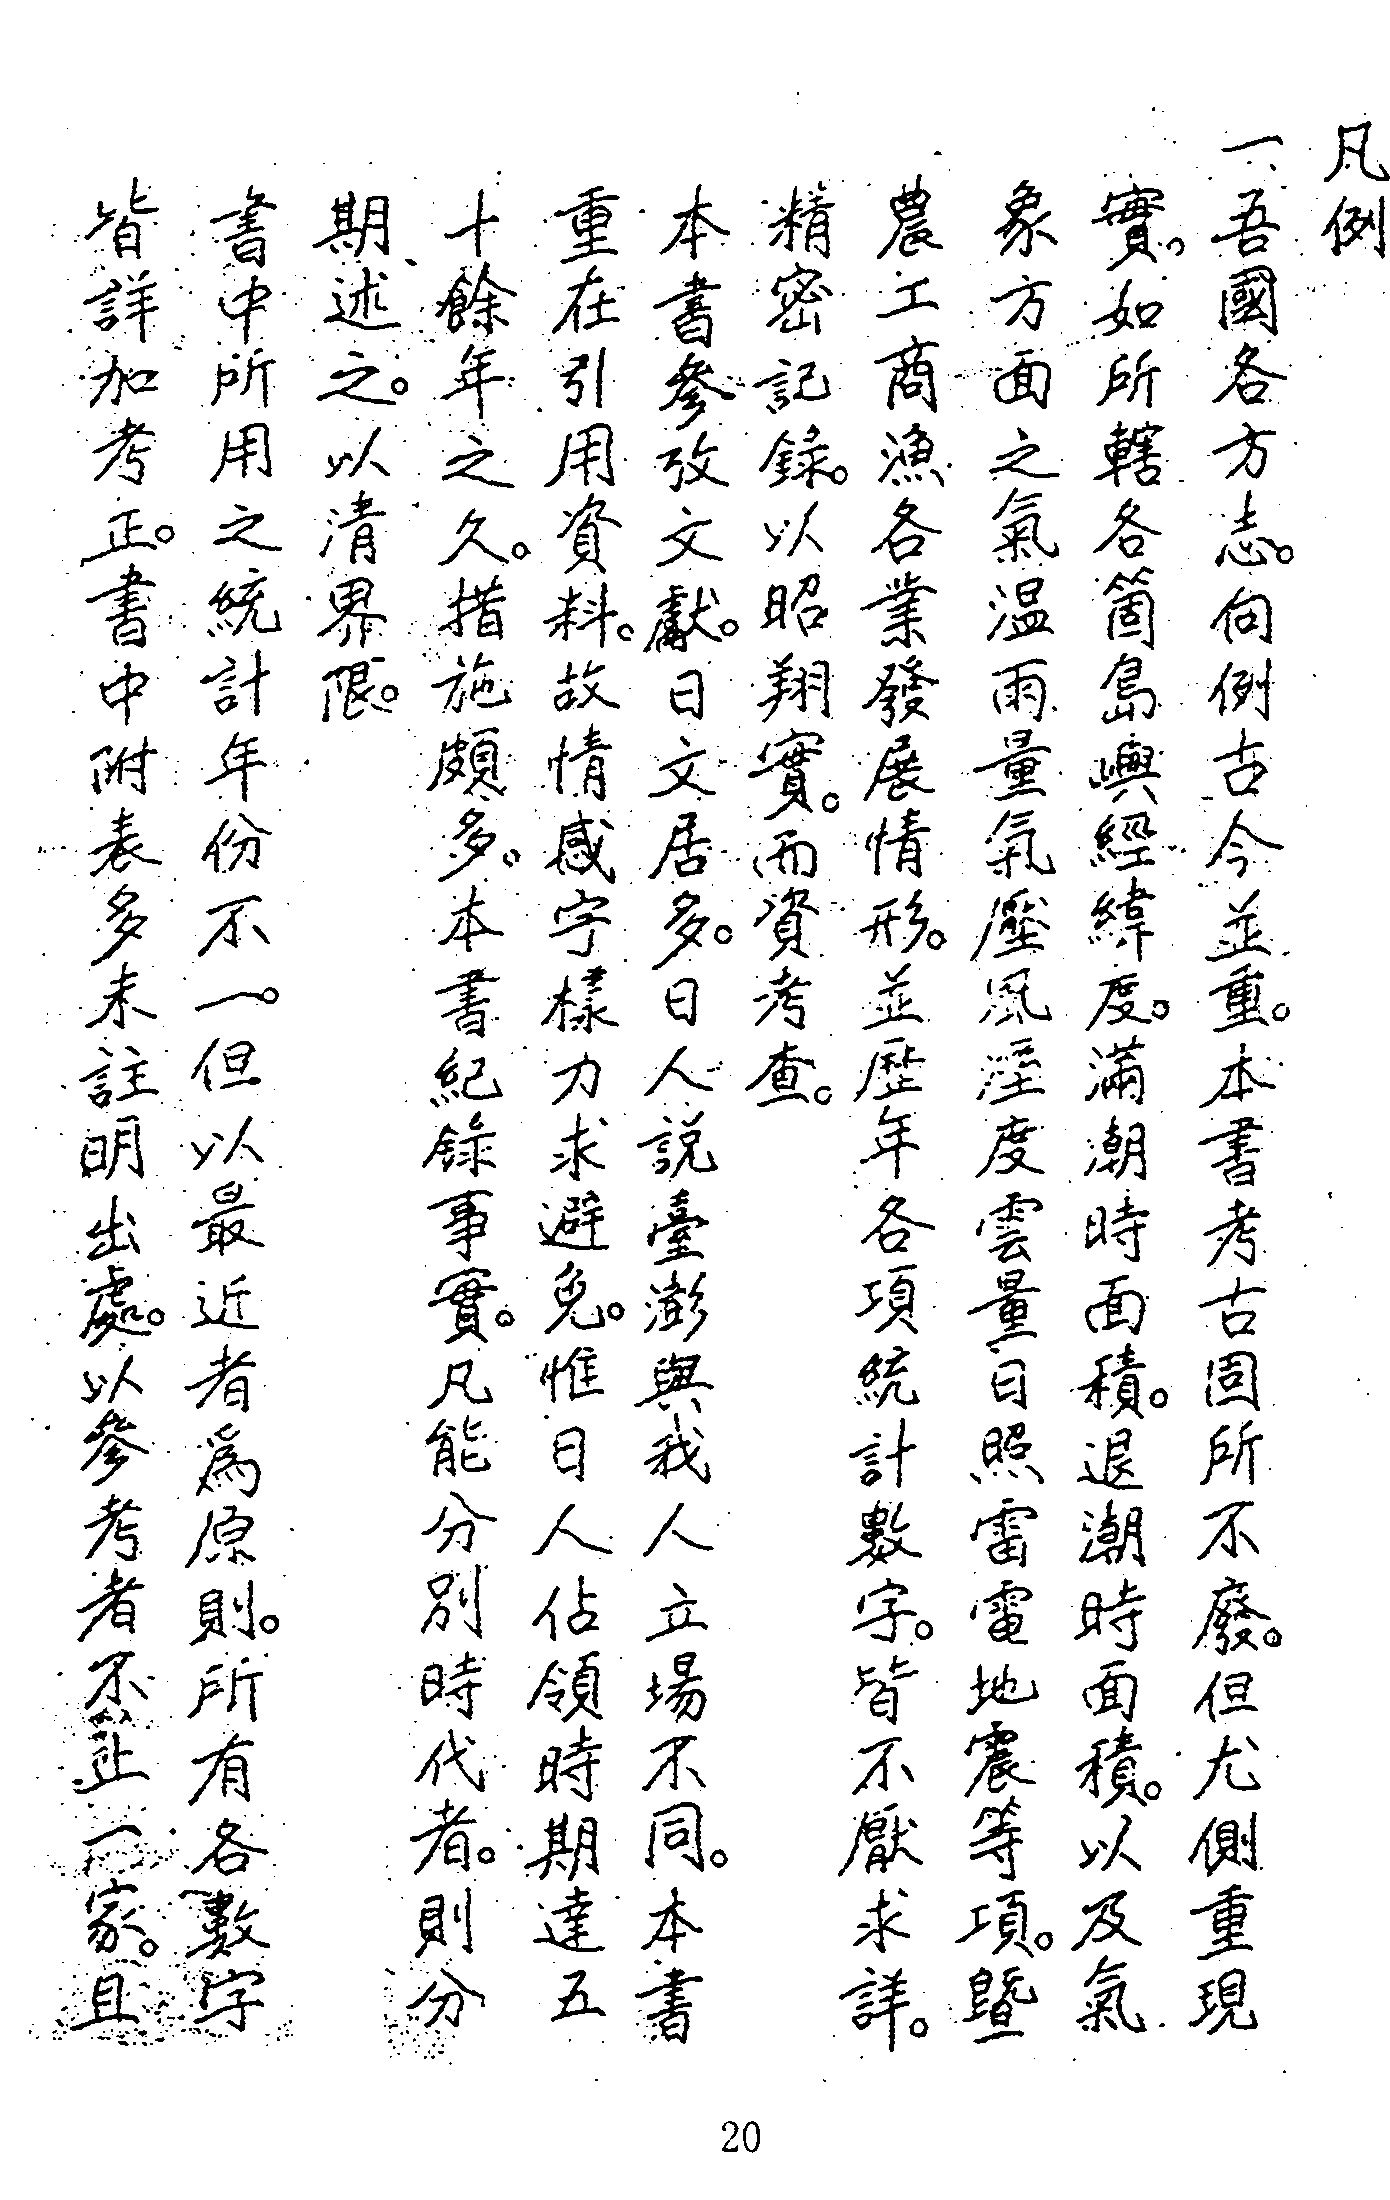 凡例
一、吾國各方志。向例古今並重。本書考古固所不廢。但尤側重現
實。如所轄各箇島嶼經緯度。滿潮時面積。退潮時面積。以及氣
象方面之氣温雨量氣壓風溼度雲量日照雷電地震等項。暨
農工商漁各業發展情形。並歷年各項統計數字。皆不厭求詳。
精密記錄。以昭翔實。而資考查。
本書參攷文獻。日文居多。日人説臺澎與我人立場不同。本書
重在引用資料。故情感字樣力求避免。惟日人佔領時期達五
十餘年之久。措施頗多。本書紀錄事實。凡能分別時代者。則分
期述之。以清界限。
書中所用之統計年份不一。但以最近者為原則。所有各數字
皆詳加考正。書中附表多未註明出處。以參考者不止一家。且
20